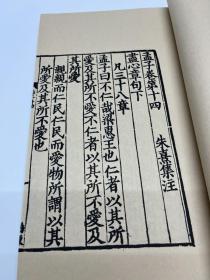 孟子卷第十四
朱熹集注
盡心章句下
凡三十八章
孟子曰不仁哉梁惠王也仁者以其所
愛及其所不愛不仁者以其所不愛及
其所愛
親親而仁民仁民而愛物所謂以其
所愛及其所不愛也